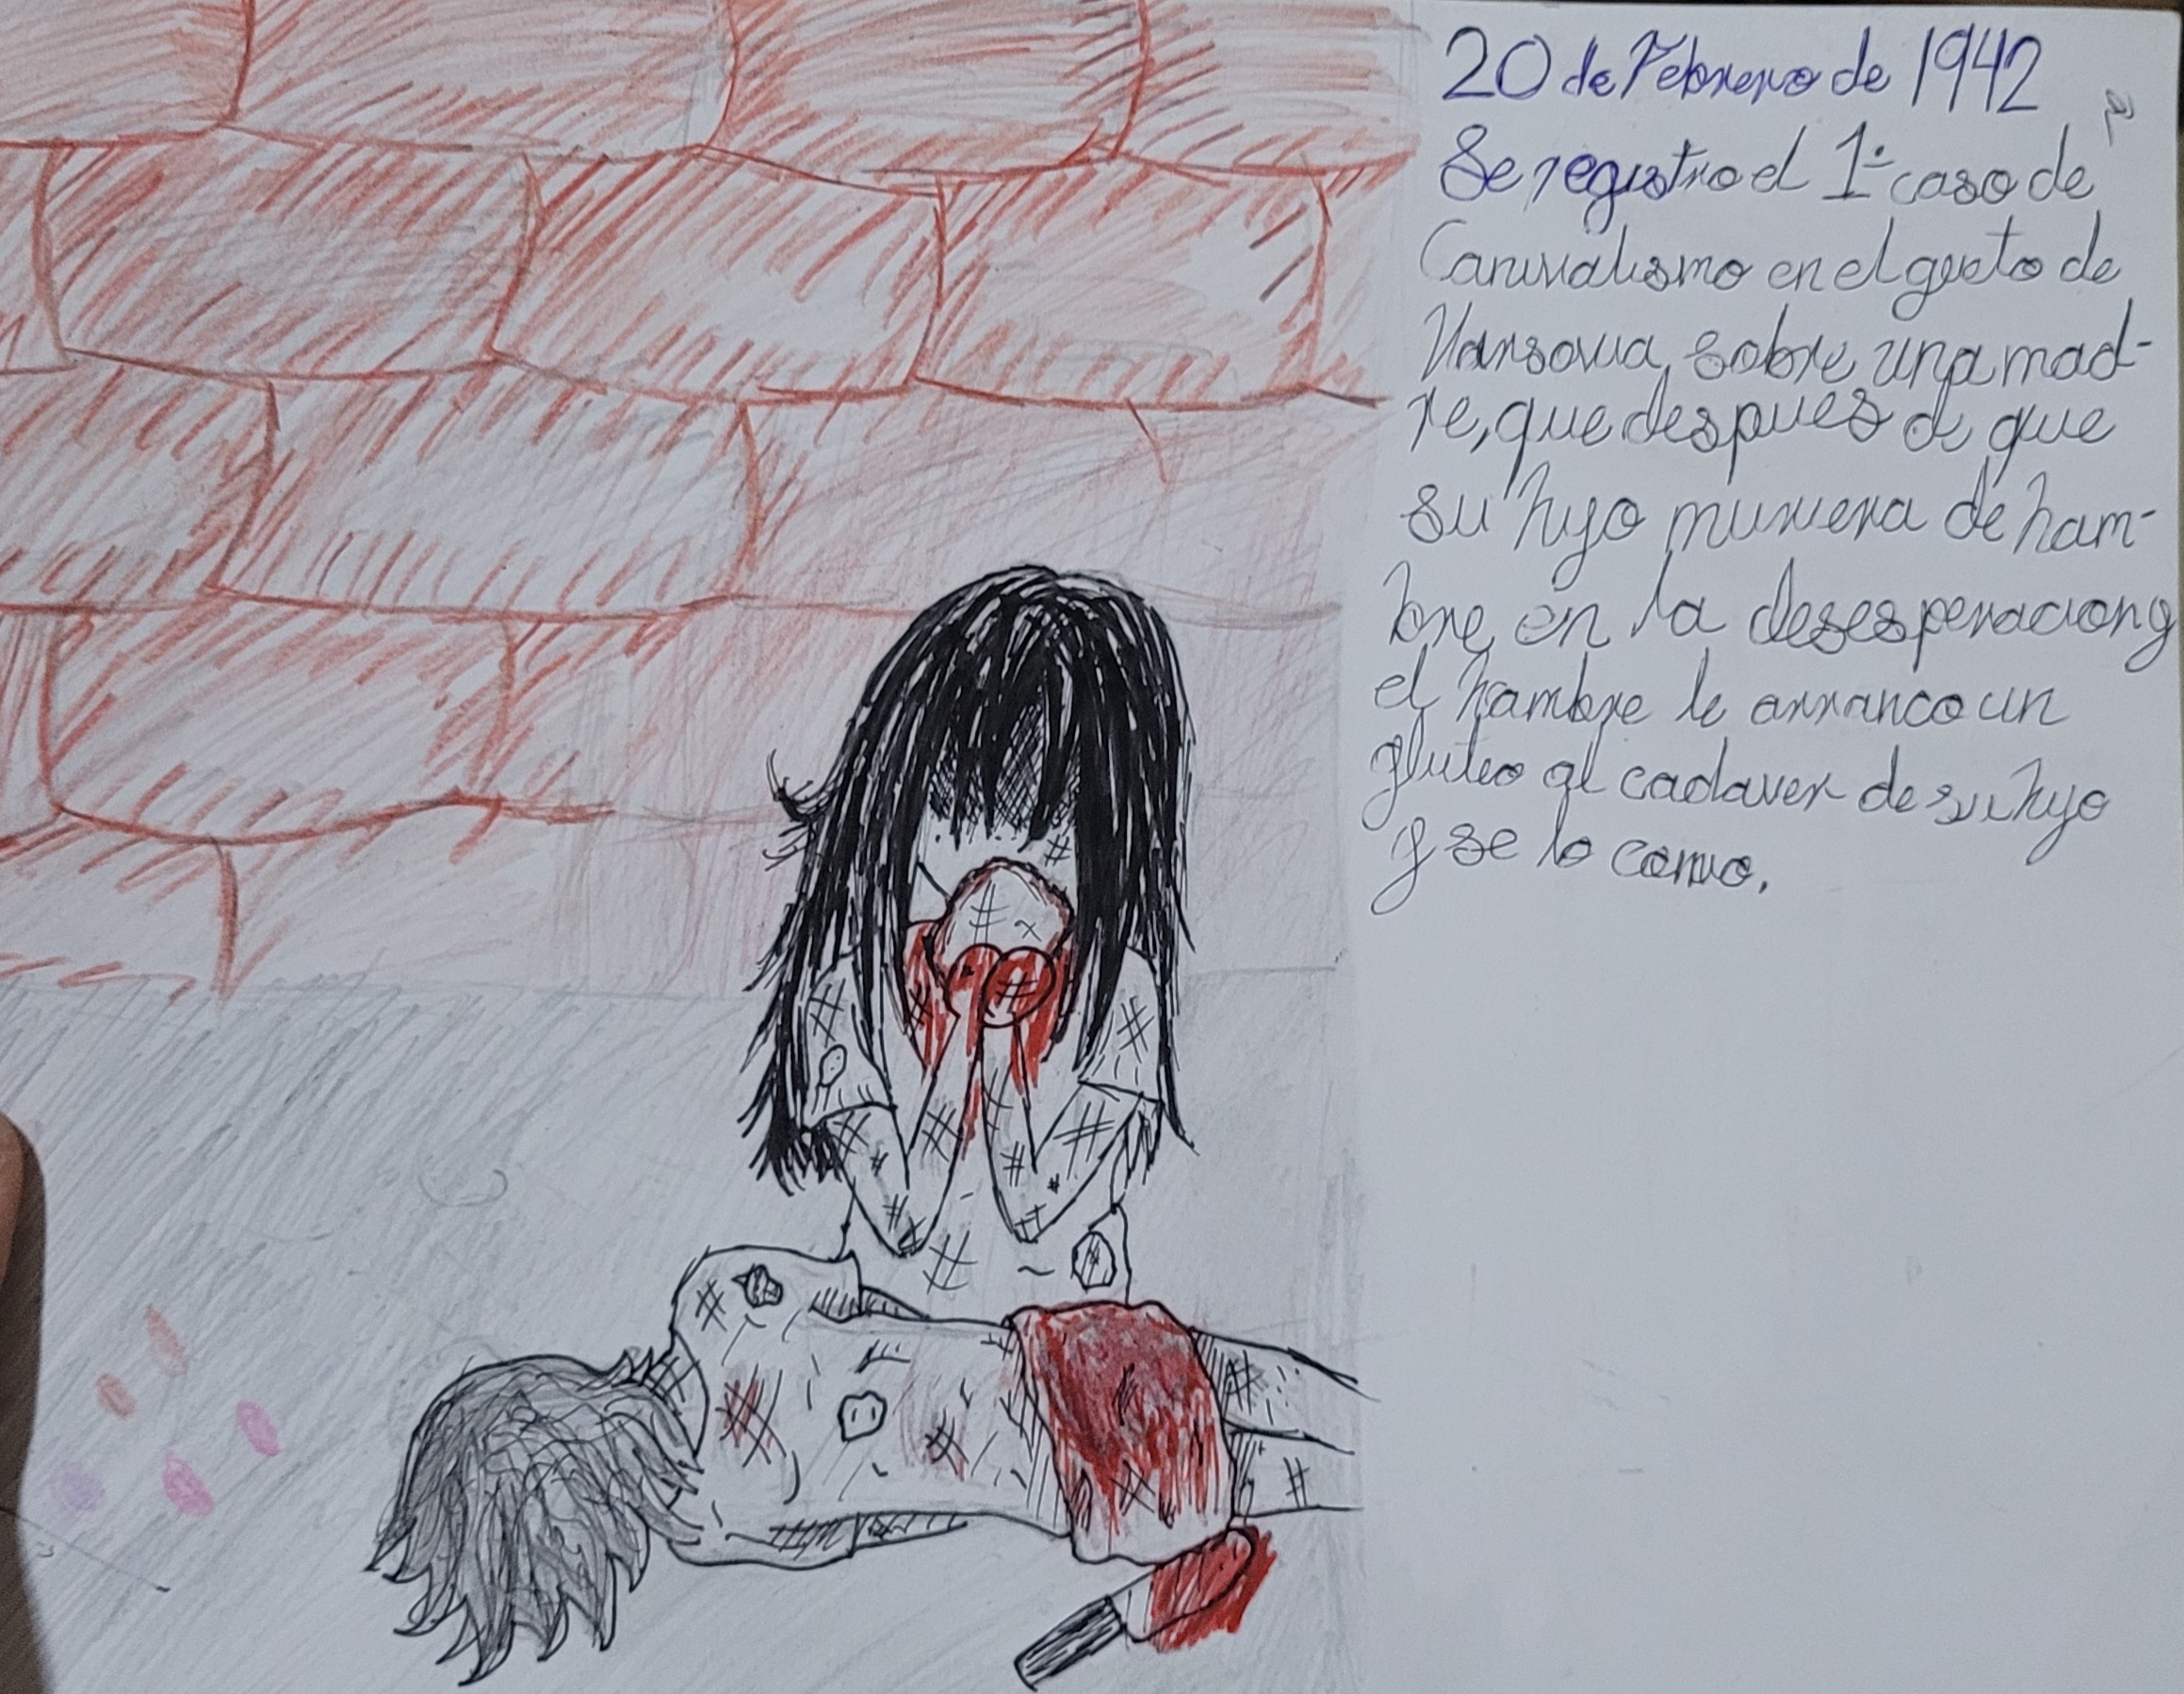 20 de Febrero de 1942
Se registro el 1° caso de
Canivalismo en el gueto de
Varsovia, sobre una mad-
re, que despues de que
su hijo muriera de ham-
bre, en la desesperacion y
el hambre le arranco un
gluteo al cadaver de su hijo
y se lo comio.